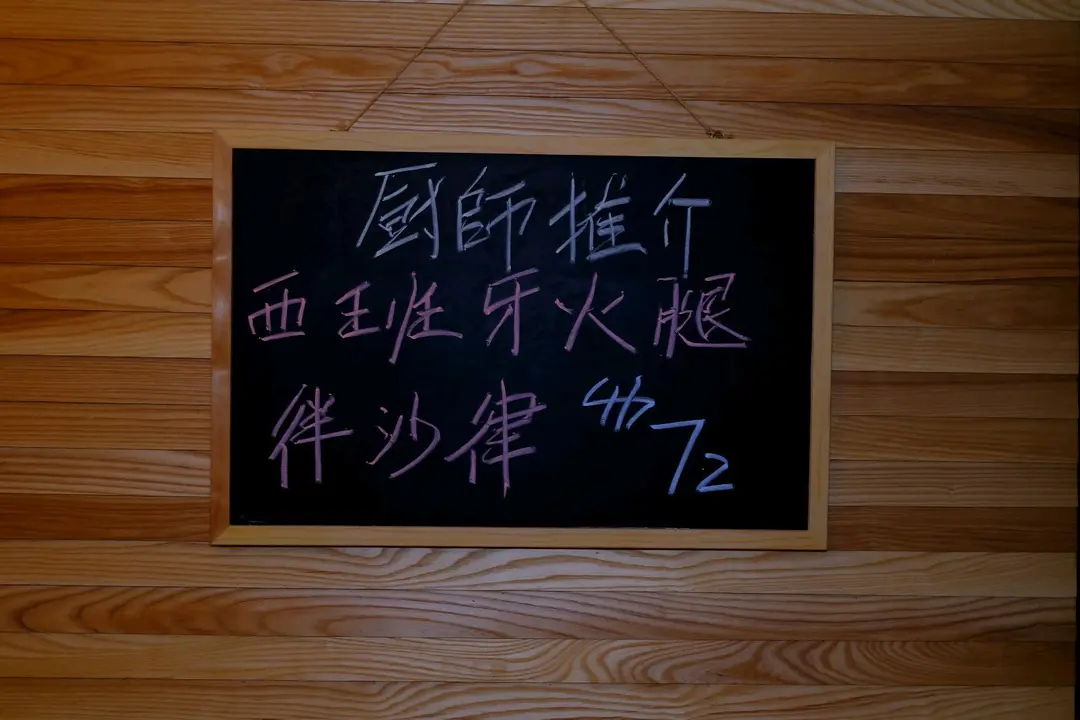 廚師推介
西班牙火腿
伴沙律
72